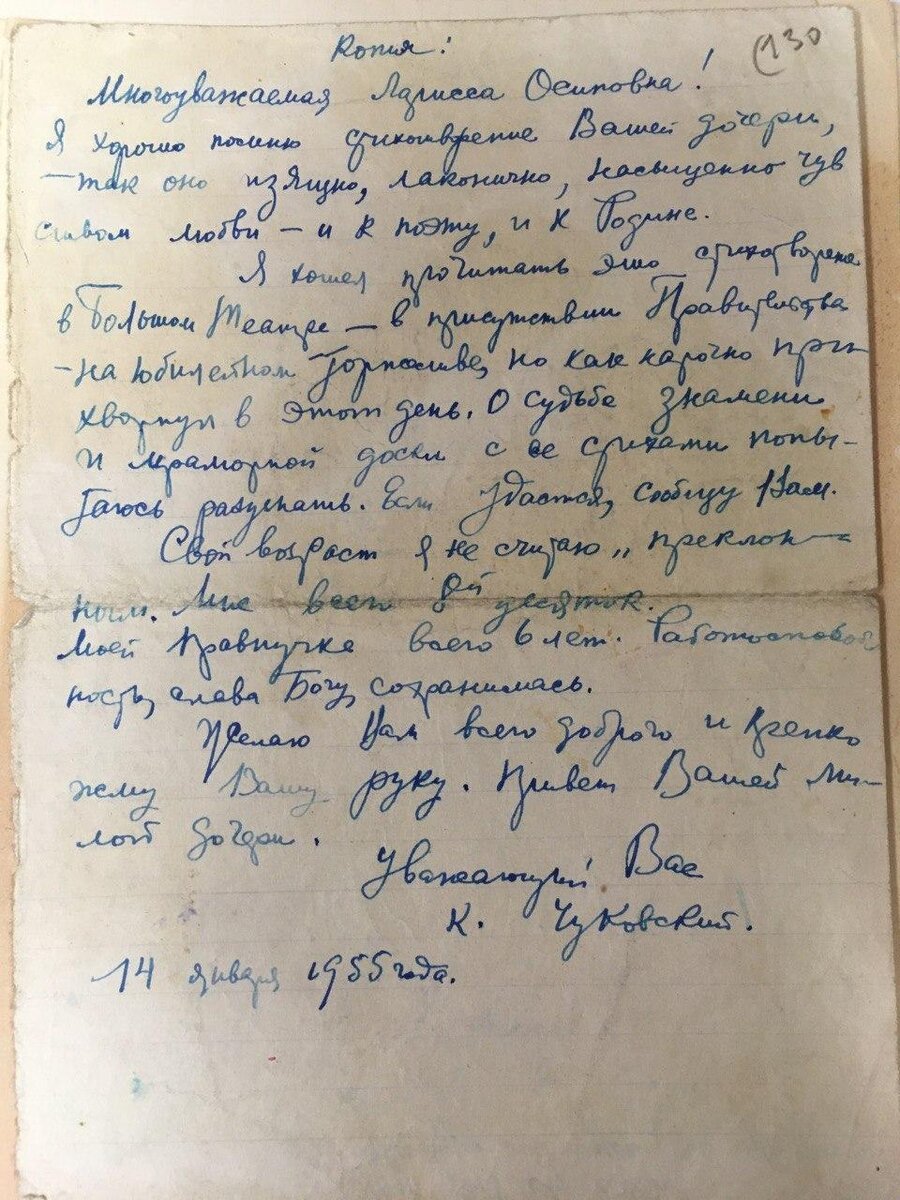 Копия:
(130
Многоуважаемая Лариса Осиповна!
Я хорошо помню стихотворение Вашей дочери,
– так оно изящно, лаконично, насыщенно чув
ством любви – и к поэту, и к Родине.
Я хотел прочитать это стихотворение
в Большом Театре – в присутствии Правительства
– на юбилейном Торжестве, но как нарочно при
хворнул в этот день. О судьбе знамени
и мраморной доски с ее стихами попы-
таюсь разузнать. Если удастся, сообщу Вам.
Свой возраст я не считаю „преклон-
ным. Мне всего 8й десяток.
Моей Правнучке всего 6 лет. Работоспособ
ность, слава Богу, сохранилась.
Желаю Вам всего доброго и крепко
жму Вашу руку. Привет Вашей ми-
лой дочери.
Уважающий Вас
К. Чуковский.
14 января 1955 года.